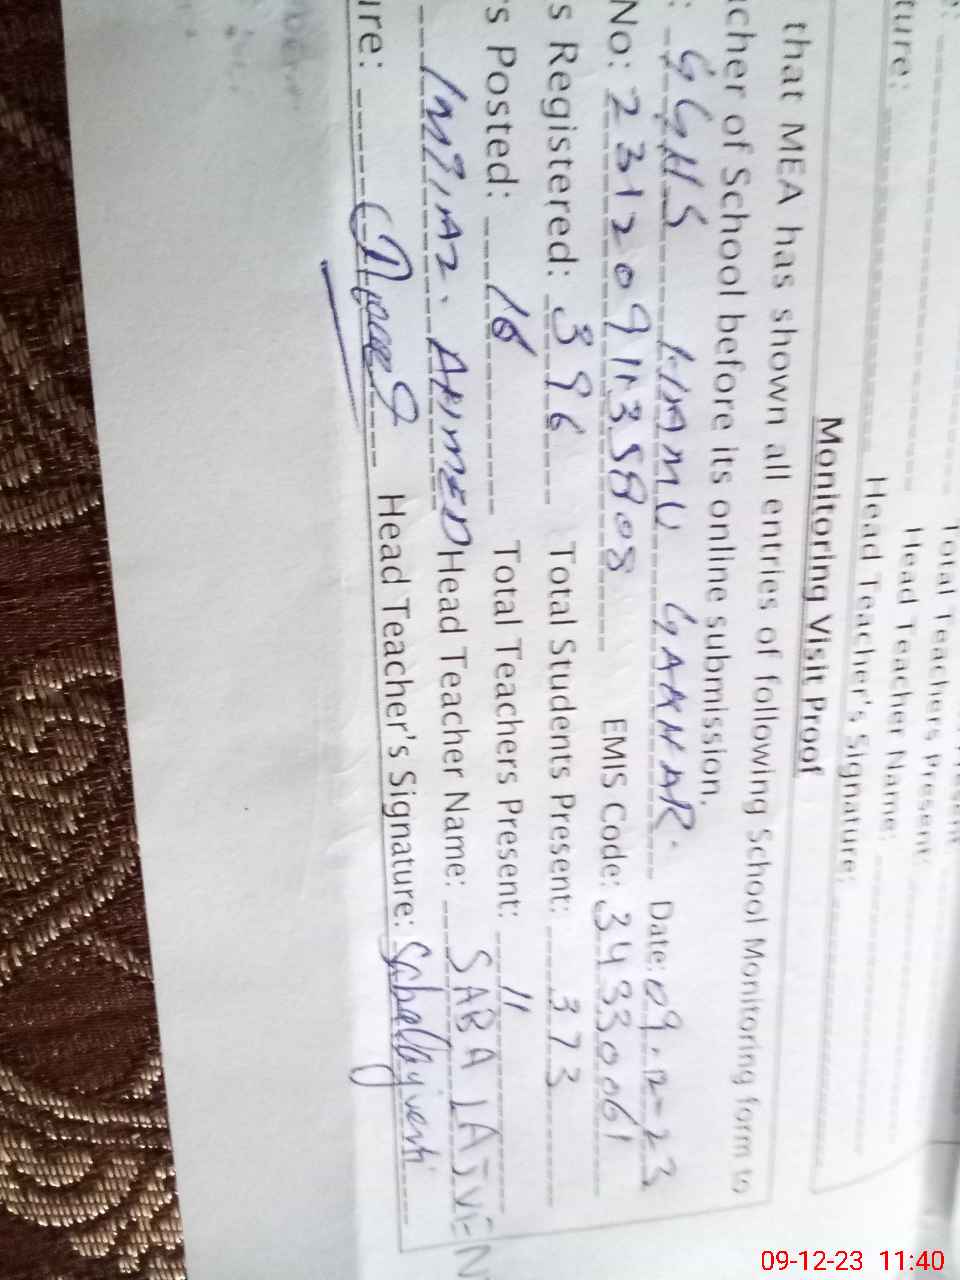 Total Teachers Present:
Head Teacher Name:
ture: Head Teacher's Signature:
Monitoring Visit Proof
that MEA has shown all entries of following School Monitoring form to
cher of School before its online submission.
: GGHS HAMU GAKHAR. Date: 09-12-23
No: EMIS Code: 34330061
s Registered: 396 Total Students Present: 373
s Posted: 16 Total Teachers Present: 11
IMTIAZ. AHMED Head Teacher Name: SABA LAJVEN
ure: Head Teacher's Signature:
09-12-23 11:40